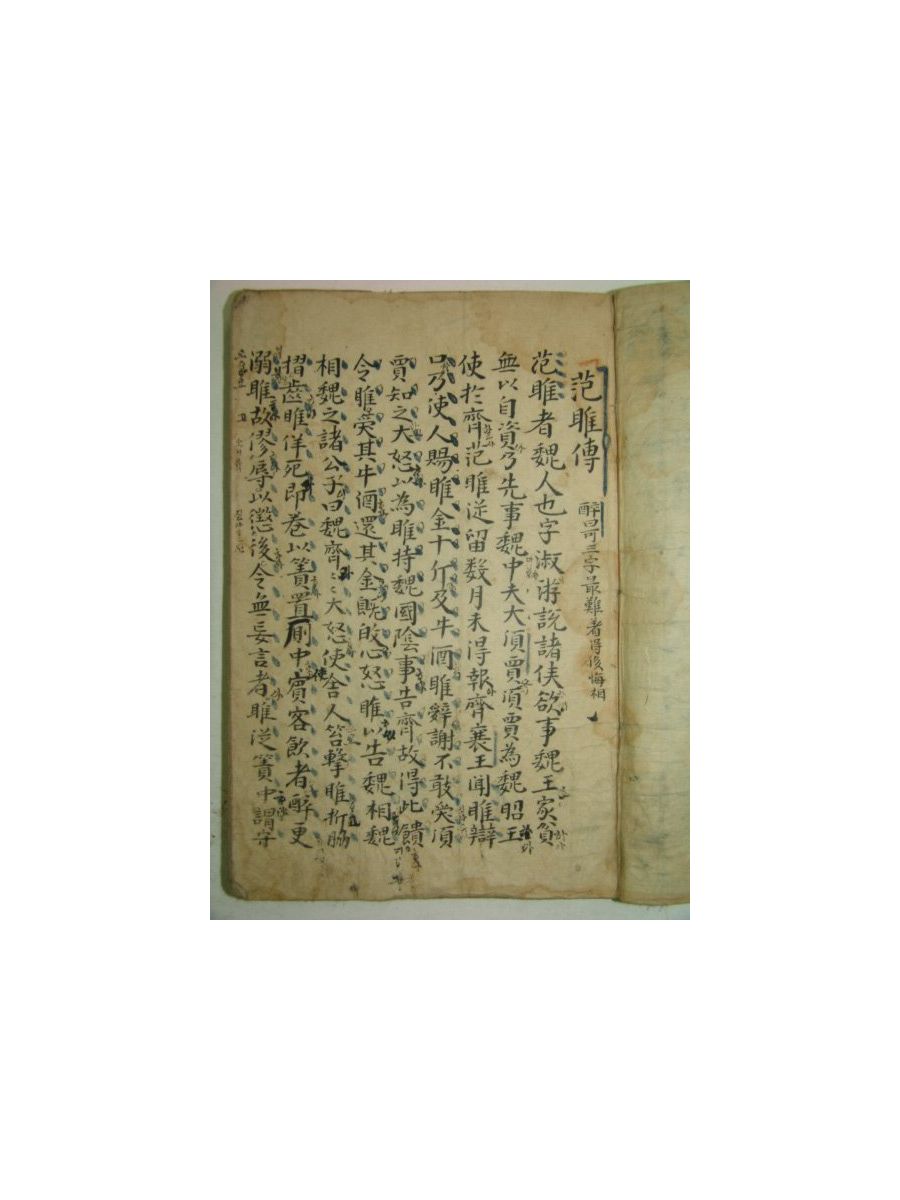 范雎傳 醉哥三字最難者得後悔相
范雎者魏人也字淑游說諸侯欲事魏王家貧
無以自資乃先事魏中夫大須賈須賈為魏昭王
使於齊范雎從留数月未得報齊襄王聞雎辯
口乃使人賜雎金十斤及牛酒雎辭謝不敢受須
賈知之大怒以為雎持魏國陰事告齊故得此饋
令雎受其牛酒還其金既的心怒雎以告魏相魏
相魏之諸公子曰魏齊〻大怒使舍人笞擊雎折脇
摺齒雎佯死即卷以簀置厠中賓客飲者醉更
溺雎故僇辱以懲後令無妄言者雎從簀中謂守